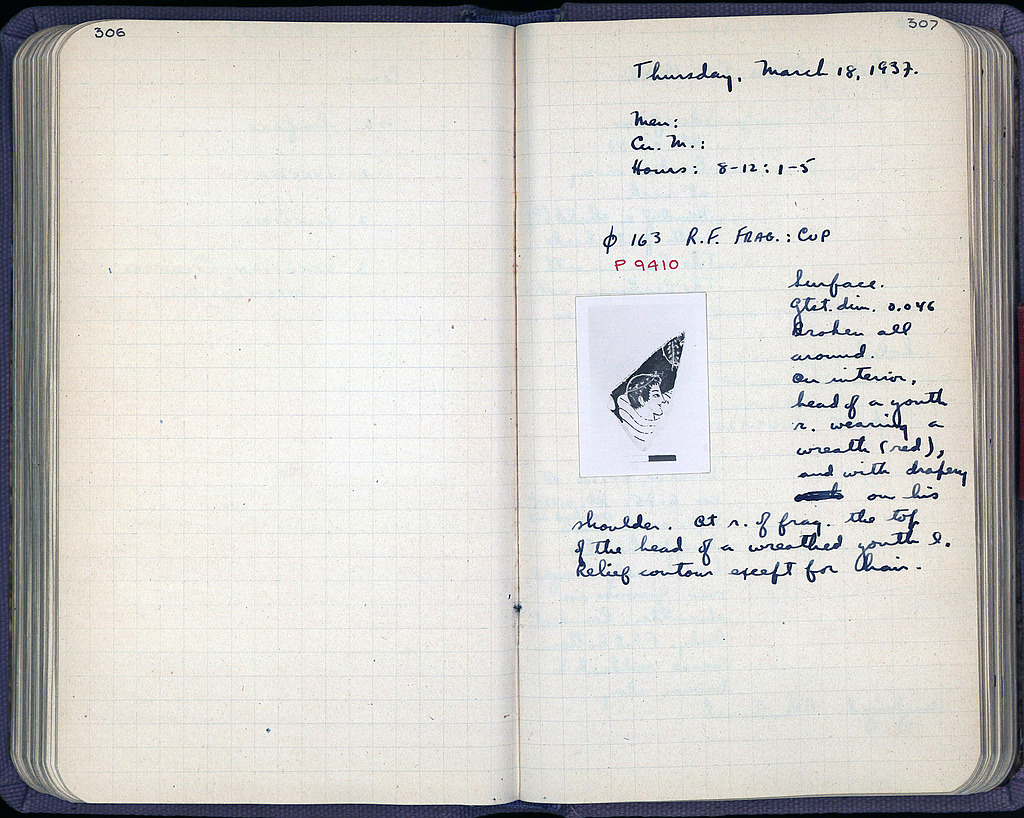 306
307
Thursday, March 18, 1937.
Men:
Cu. M.:
Hours: 8-12: 1-5
φ 163 R.F. FRAG.: CUP
P 9410
Surface.
Gtst. dim. 0.046
Broken all
around.
On interior,
head of a youth
r. wearing a
wreath (red),
and with drapery
on his
shoulder. At r. of frag. the top
of the head of a wreathed youth l.
Relief contour except for hair.